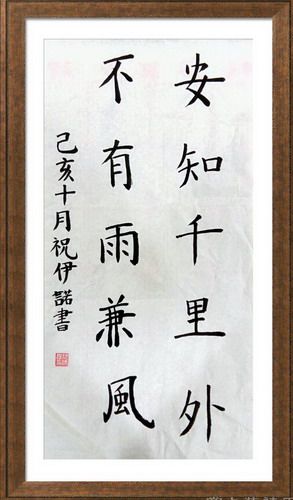 安知千里外
不有雨兼風
己亥十月祝伊諾書